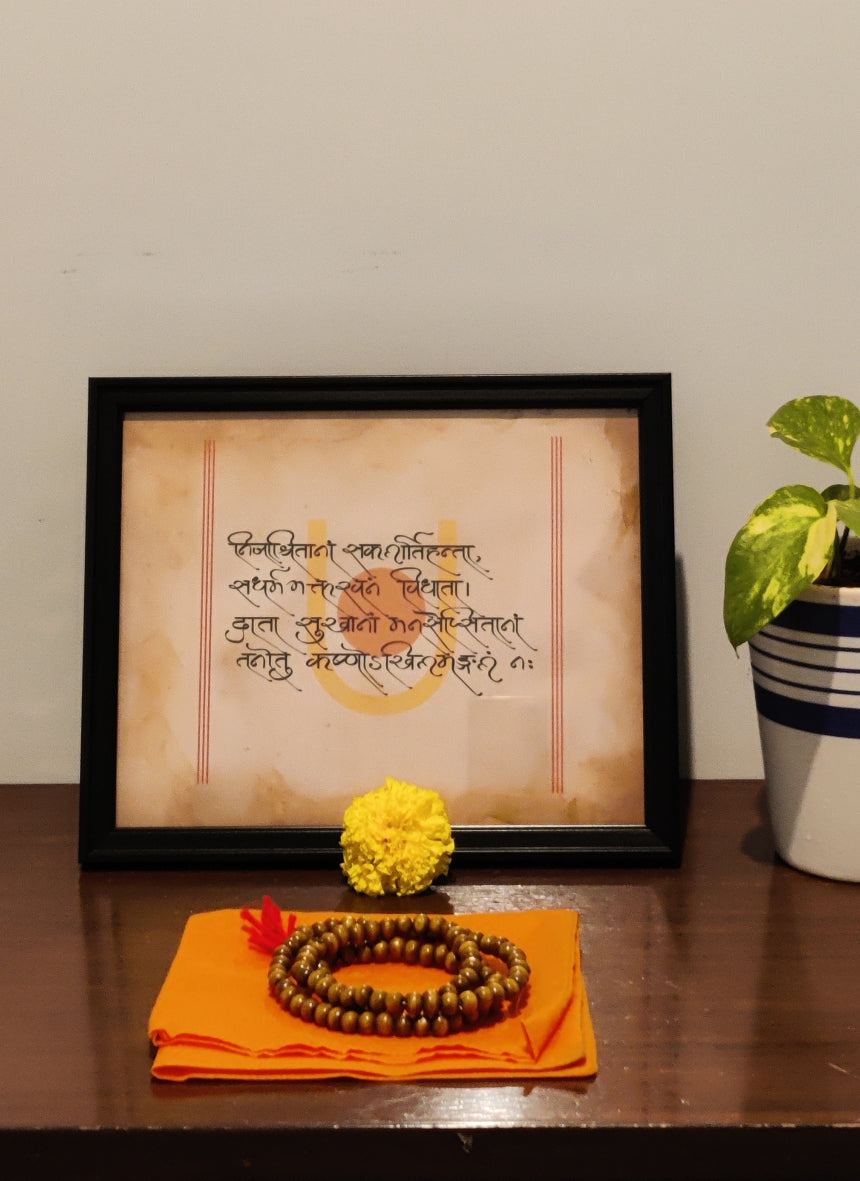 निजाश्रितानां सकलार्तिहन्ता,
सधर्मभक्तेरवनं विधाता।
दाता सुखानां मनसेप्सितानां
तनोतु कृष्णोऽखिलमङ्गलं नः